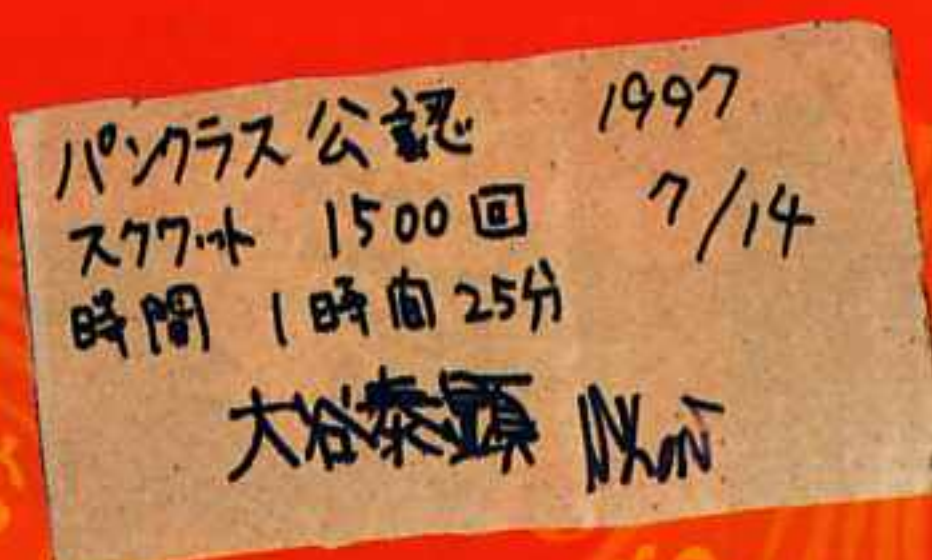 パンクラス公認 1997
スクワット 1500回 7/14
時間 1時間25分
大谷泰顕